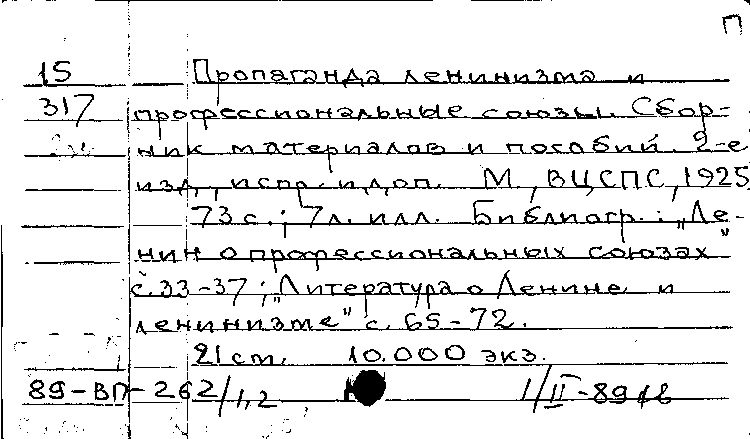 П
15 Пропаганда ленинизма и
317 профессиональные союзы. Сбор-
ник материалов и пособий. 2-е
изд., испр. и доп. М., ВЦСПС, 1925
73 с.; 7 л. илл. Библиогр.: „Ле-
нин о профессиональных союзах"
с. 33-37; „Литература о Ленине и
ленинизме" с. 65-72.
21 ст. 10.000 экз.
89-ВП-262/1,2 1/II-89